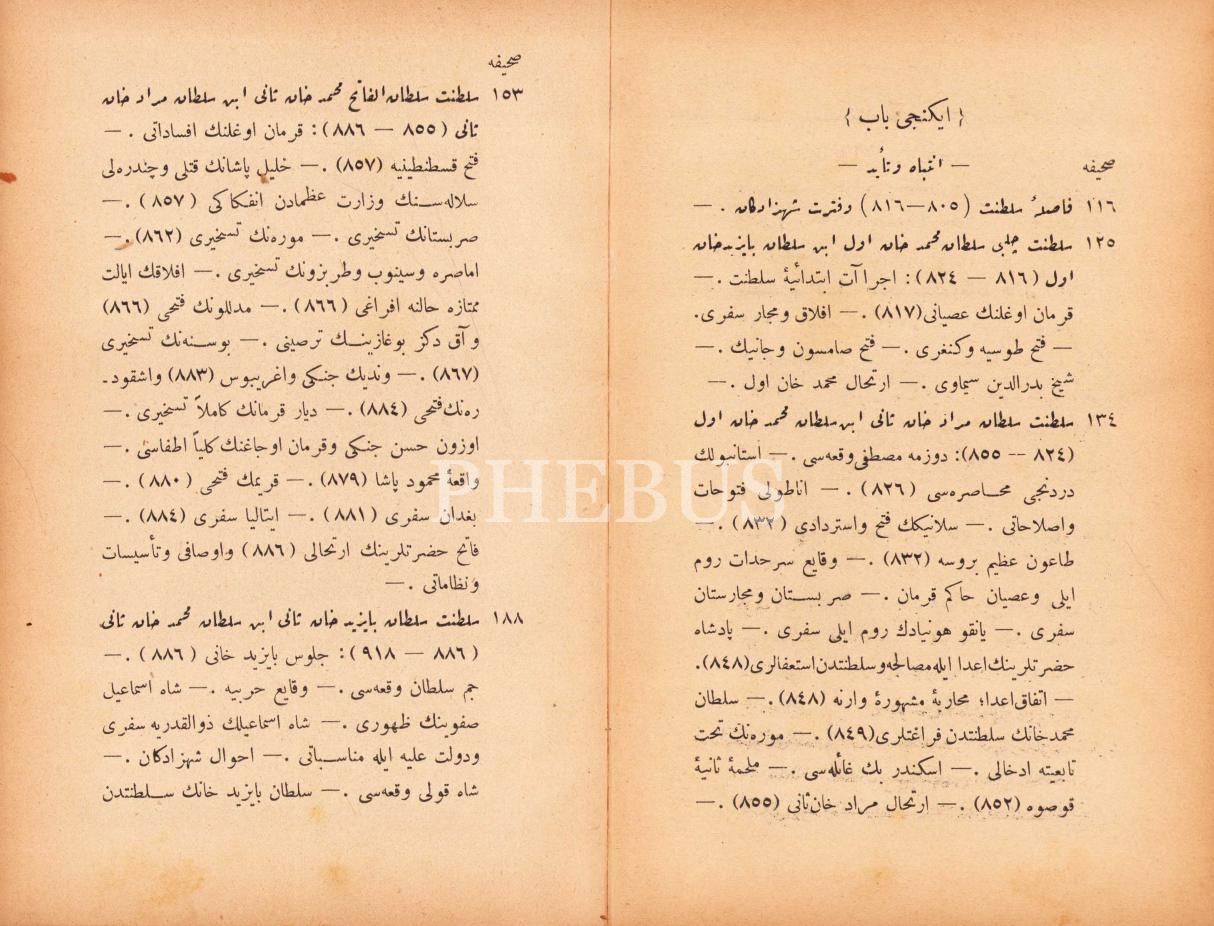 ﴿ ایكنجی باب ﴾
— انتباه وتأید —
صحیفه
١١٦ فاصلۀ سلطنت (٨٠٥—٨١٦) وفترت شهزادكان . —
١٢٥ سلطنت چلبی سلطان محمد خان اول ابن سلطان بایزیدخان
اول (٨١٦ — ٨٢٤) : اجراآت ابتدائیۀ سلطنت . —
قرمان اوغلنك عصیانی (٨١٧) . — افلاق ومجار سفری .
— فتح طوسیه وكنغری . — فتح صامسون وجانیك . —
شیخ بدرالدین سیماوی . — ارتحال محمد خان اول . —
١٣٤ سلطنت سلطان مراد خان ثانی ابن سلطان محمد خان اول
(٨٢٤ — ٨٥٥): دوزمه مصطفی وقعه‌سی . — استانبولك
دردنجی محاصره‌سی (٨٢٦) . — اناطولی فتوحات
واصلاحاتی . — سلانیكك فتح واستردادی (٨٣٢) . —
طاعون عظیم بروسه (٨٣٢) . — وقایع سرحدات روم
ایلی وعصیان حاكم قرمان . — صربستان ومجارستان
سفری . — یانقو هونیادك روم ایلی سفری . — پادشاه
حضرتلرینك اعدا ایله مصالحه وسلطنتدن استعفالری (٨٤٨).
— اتفاق اعدا؛ محاربۀ مشهورۀ وارنه (٨٤٨) . — سلطان
محمدخانك سلطنتدن فراغتلری (٨٤٩) . — موره‌نك تحت
تابعیته ادخالی . — اسكندر بك غائله‌سی . — ملحمۀ ثانیۀ
قوصوه (٨٥٢) . — ارتحال مراد خان ثانی (٨٥٥) . —
صحیفه
١٥٣ سلطنت سلطان الفاتح محمد خان ثانی ابن سلطان مراد خان
ثانی (٨٥٥ — ٨٨٦) : قرمان اوغلنك افساداتی . —
فتح قسطنطینیه (٨٥٧) . — خلیل پاشانك قتلی وچندره‌لی
سلاله‌سنك وزارت عظمادن انفكاكی (٨٥٧) . —
صربستانك تسخیری . — موره‌نك تسخیری (٨٦٢) . —
اماصره وسینوب وطربزونك تسخیری . — افلاقك ایالت
ممتازه حالنه افراغی (٨٦٦) . — مدللونك فتحی (٨٦٦)
و آق دكز بوغازینك ترصینی . — بوسنه‌نك تسخیری
(٨٦٧) . — وندیك جنكی واغریبوس (٨٨٣) واشقود-
ره‌نك فتحی (٨٨٤) . — دیار قرمانك كاملاً تسخیری . —
اوزون حسن جنكی وقرمان اوجاغنك كلیاً اطفاسی . —
واقعۀ محمود پاشا (٨٧٩) . — قریمك فتحی (٨٨٠) . —
بغدان سفری (٨٨١) . — ایتالیا سفری (٨٨٤) . —
فاتح حضرتلرینك ارتحالی (٨٨٦) واوصافی وتأسیسات
ونظاماتی . —
١٨٨ سلطنت سلطان بایزید خان ثانی ابن سلطان محمد خان ثانی
(٨٨٦ — ٩١٨) : جلوس بایزید خانی (٨٨٦) . —
جم سلطان وقعه‌سی . — وقایع حربیه . — شاه اسماعیل
صفوینك ظهوری . — شاه اسماعیلك ذوالقدریه سفری
ودولت علیه ایله مناسباتی . — احوال شهزادكان . —
شاه قولی وقعه‌سی . — سلطان بایزید خانك سلطنتدن
PHEBUS